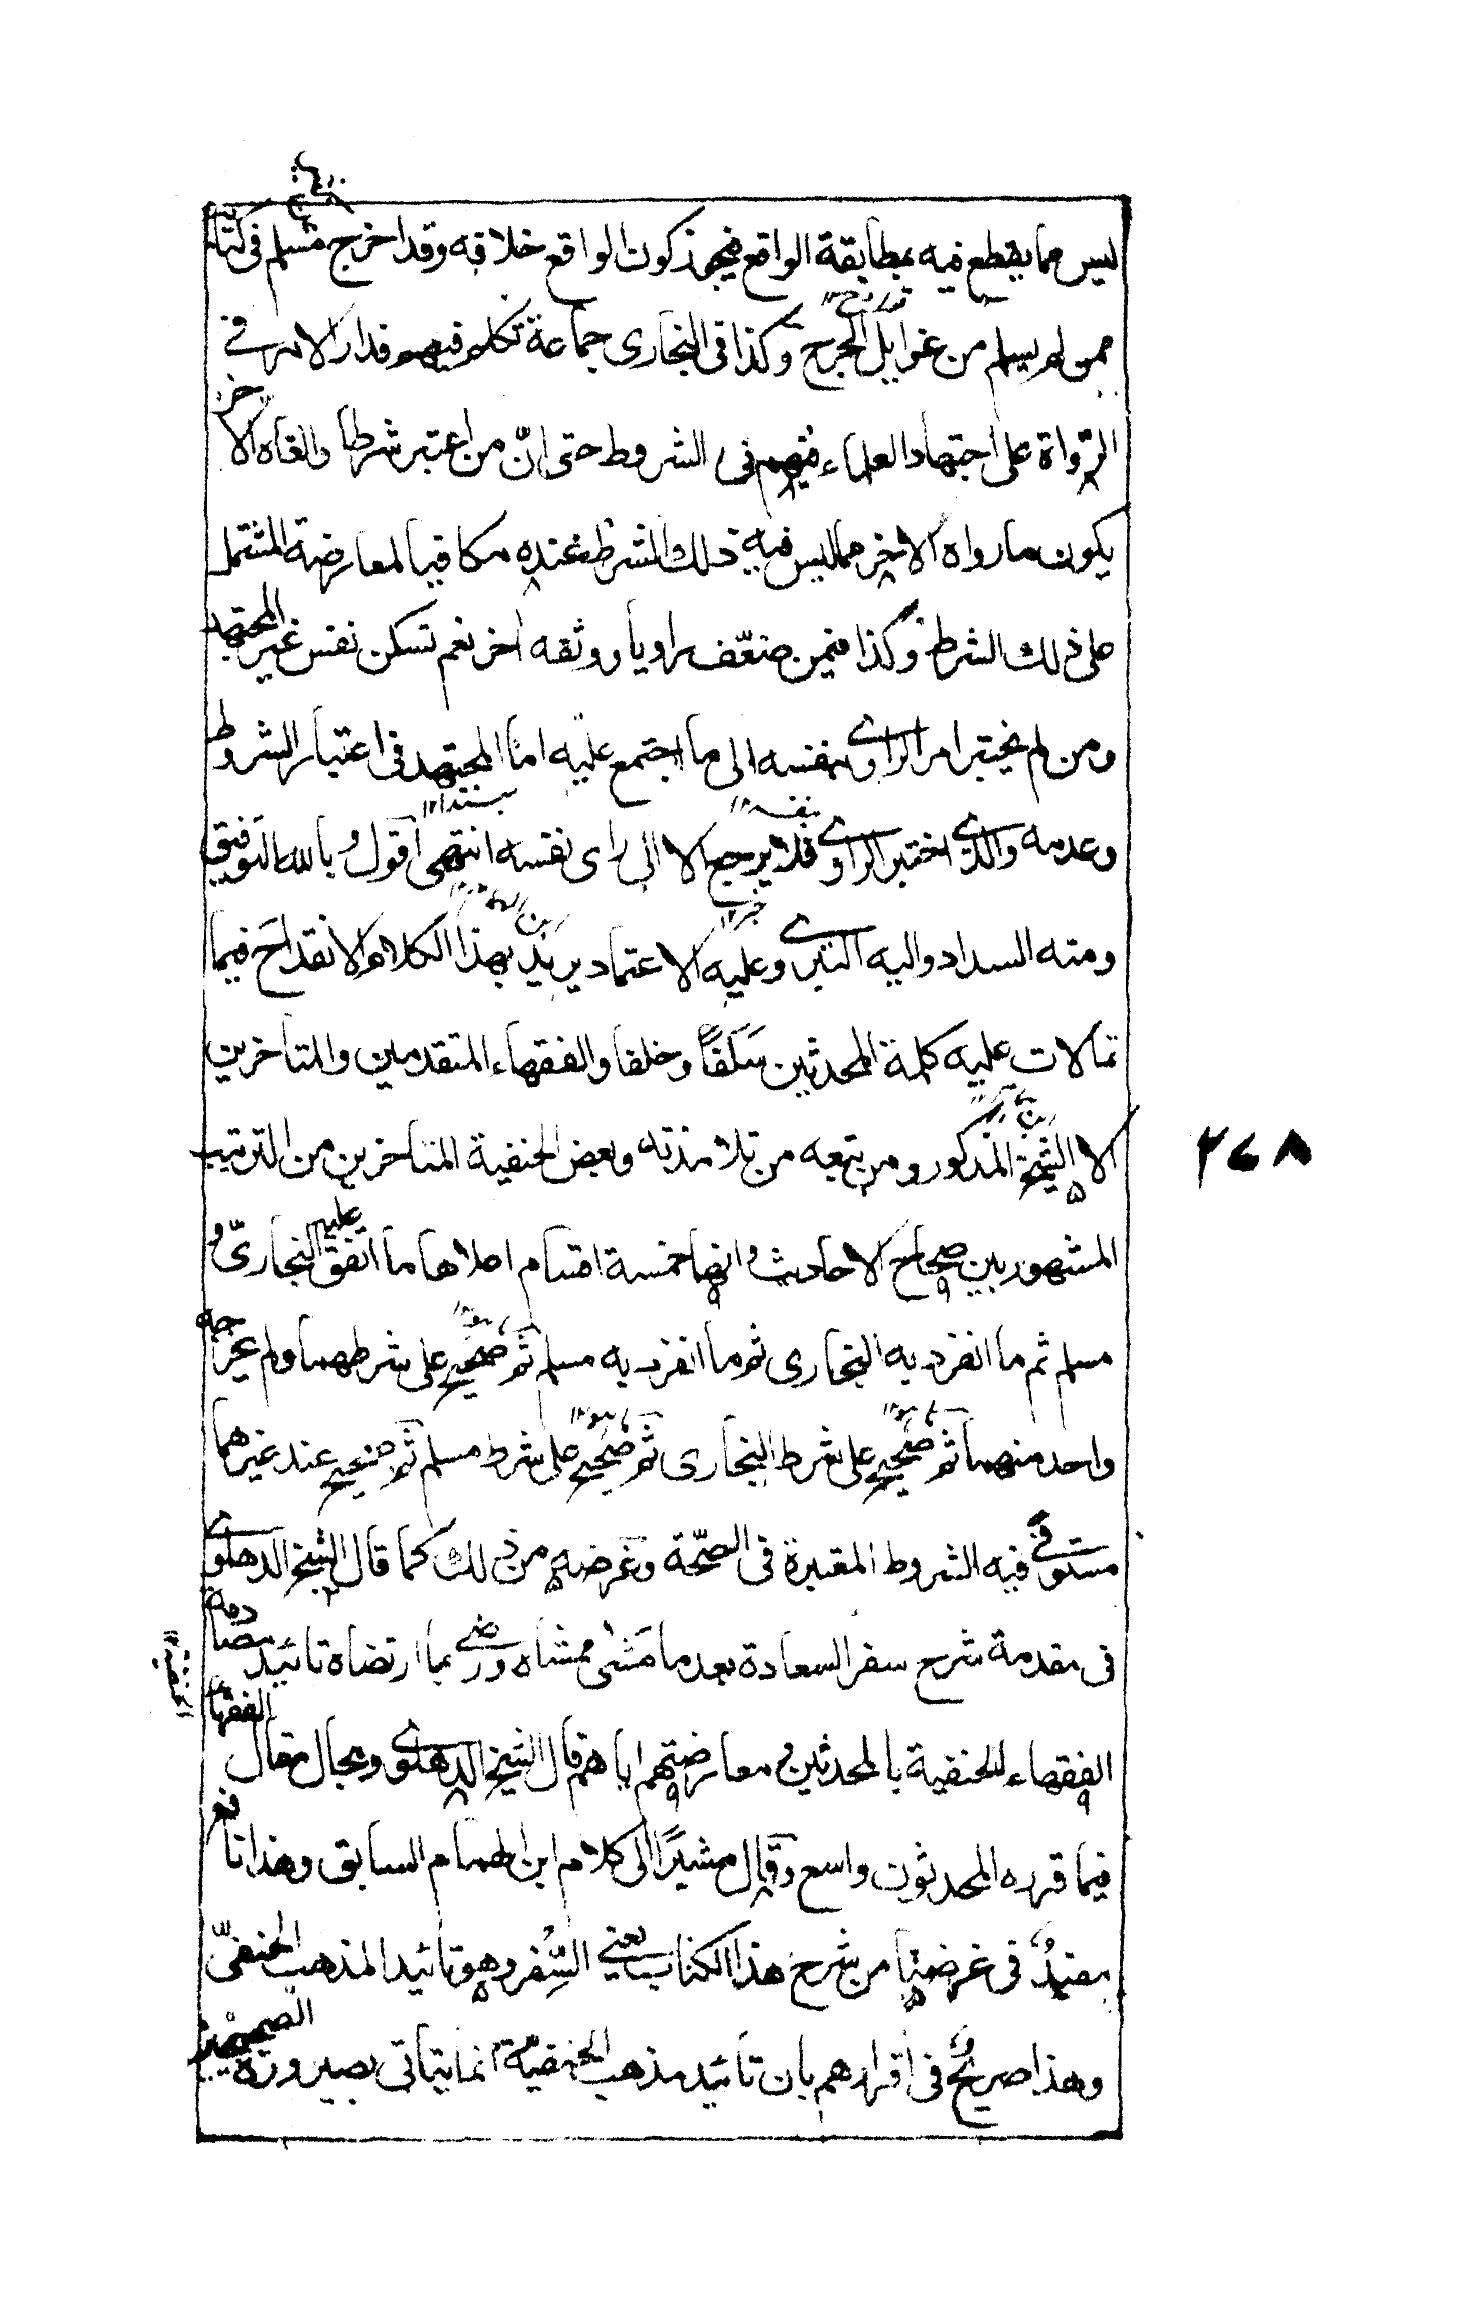 ليس مما يقطع فيه بمطابقة الواقع فيجوز كون الواقع خلافه وقد اخرج مسلم فى كتابه
ممن لم يسلم من غوايل الجرح وكذا فى البخارى جماعة تكلم فيهم فدار الامر فى
الرواة على اجتهاد العلماء فيهم فى الشروط حتى انّ من اعتبر شرطا والغاه الاخر
يكون ما رواه الاخر مما ليس فيه ذلك الشرط عنده مكافيا لمعارضة المشتمل
على ذلك الشرط وكذا فيمن ضعّف راويا ووثقه اخر نعم تسكن نفس غير المجتهد
ومن لم يختبر امر الراوى بنفسه الى ما اجتمع عليه اما المجتهد فى اعتبار الشروط
وعدمه والذى اختبر الراوى فلا يرجع الا الى راى نفسه انتهى اقول وبالله التوفيق
ومنه السداد واليه التبرى وعليه الاعتماد يريد بهذا الكلام الانقداح فيما
تمالات عليه كلمة المحدثين سَلَفًا وخلفا والفقهاء المتقدمين والمتاخرين
الا الشيخ المذكور ومن يتبعه من تلامذته وبعض الحنفية المتاخرين من الترتيب
٢٦٨
المشهور بين صحاح الاحاديث وانها خمسة اقسام اعلاها ما اتفق عليه البخارىّ و
مسلم ثم ما انفرد به البخارى ثم ما انفرد به مسلم ثم صحيح على شرطهما ولم يخرجه
واحد منهما ثم صحيح على شرط البخارى ثم صحيح على شرط مسلم ثم صحيح عند غيرهما
مستوفى فيه الشروط المعتبرة فى الصحّة وغرضه من ذلك كما قال الشيخ الدهلوى
فى مقدمة شرح سفر السعادة بعد ما مَشٰى ممشاه ورضى بما ارتضاه تائيد مصادمة
الحنفية ١٢
الفقهاء الحنفية بالمحدثين ومعارضتهم اياهم قال الشيخ الدهلوى ومجال مقال الفقهاء
فيما قرره المحدثون واسع وقال مشيرًا الى كلام ابن الهمام السابق وهذا نافع
مفيدٌ فى غرضنا من شرح هذا الكتاب يعنى السِّفر وهو تائيد المذهب الحنفىّ
وهذا صريحٌ فى اقرارهم بان تائيد مذهب الحنفيّة انما يتاتى بصيرورة الصحيحين